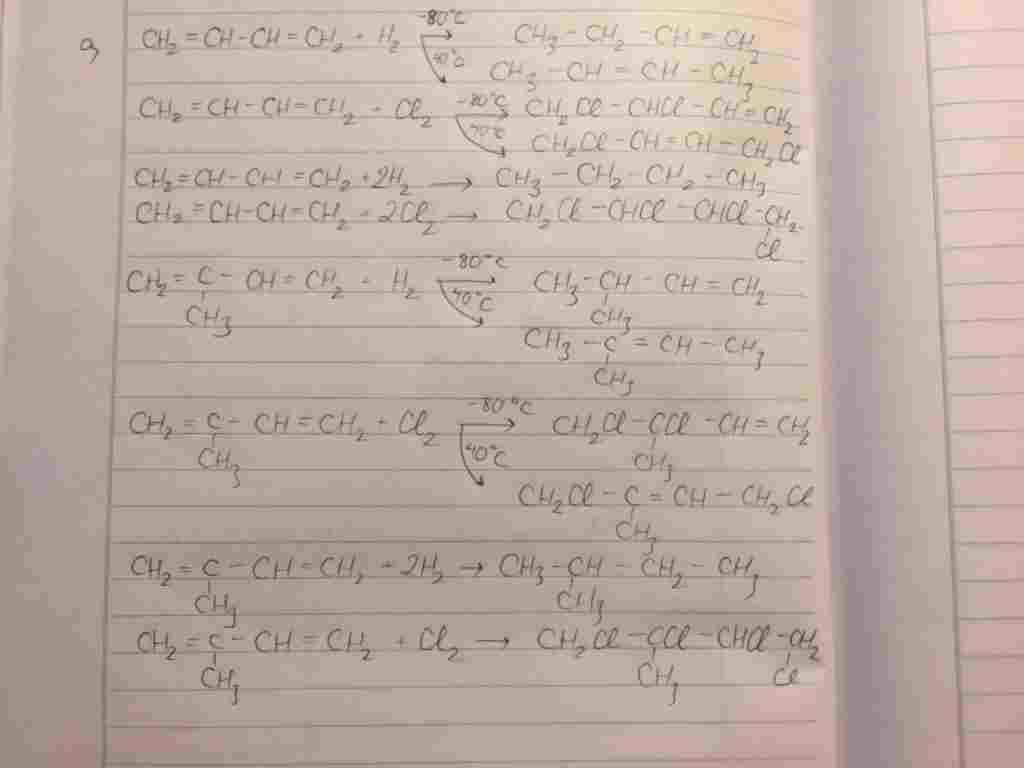 a,
-80°C
CH₂=CH-CH=CH₂ + H₂ → CH₃-CH₂-CH=CH₂
40°C
CH₃-CH=CH-CH₃
-80°C
CH₂=CH-CH=CH₂ + Cl₂ → CH₂Cl-CHCl-CH=CH₂
40°C
CH₂Cl-CH=CH-CH₂Cl
CH₂=CH-CH=CH₂ + 2H₂ → CH₃-CH₂-CH₂-CH₃
CH₂=CH-CH=CH₂ + 2Cl₂ → CH₂Cl-CHCl-CHCl-CH₂
Cl
-80°C
CH₂=C-CH=CH₂ + H₂ → CH₃-CH-CH=CH₂
40°C
CH₃ CH₃
CH₃-C=CH-CH₃
CH₃
-80°C
CH₂=C-CH=CH₂ + Cl₂ → CH₂Cl-CCl-CH=CH₂
40°C
CH₃ CH₃
CH₂Cl-C=CH-CH₂Cl
CH₃
CH₂=C-CH=CH₂ + 2H₂ → CH₃-CH-CH₂-CH₃
CH₃ CH₃
CH₂=C-CH=CH₂ + Cl₂ → CH₂Cl-CCl-CHCl-CH₂
CH₃ CH₃ Cl